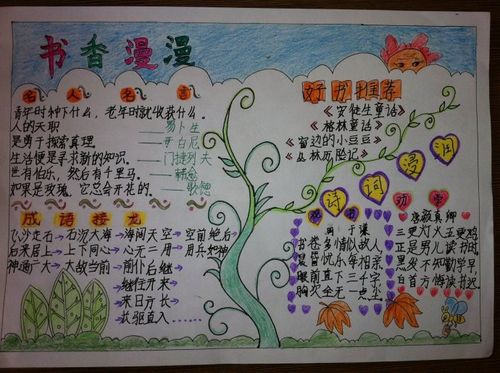 书香漫漫
名人名言
青年时种下什么,老年时就收获什么。
——易卜生
人的天职
是勇于探索真理。——哥白尼
生活便是寻求新的知识。
——门捷列夫
世有伯乐,然后有千里马。
——韩愈
如果是玫瑰,它总会开花的。——歌德
成语接龙
飞沙走石→石沉大海→海阔天空→空前绝后→
后来居上→上下同心→心无二用→用兵如神→
神通广大→大敌当前→前仆后继→
继往开来→
来日方长→
长驱直入
好书推荐
《安徒生童话》
《格林童话》
《窗边的小豆豆》
《丛林历险记》
诗词浸润
观书
于谦
书卷多情似故人,
晨昏忧乐每相亲。
眼前直下三千字,
胸次全无一点尘。
劝学
唐 颜真卿
三更灯火五更鸡
正是男儿读书时。
黑发不知勤学早,
白首方悔读书迟。